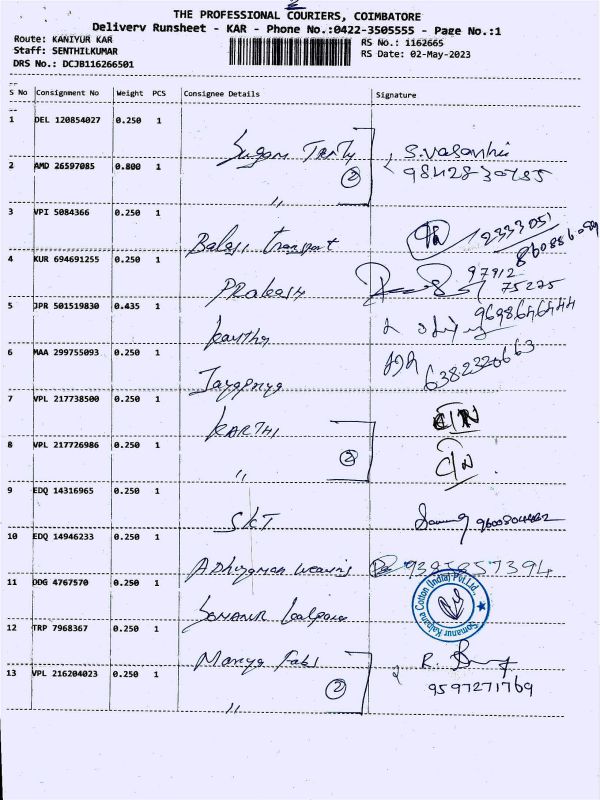 THE PROFESSIONAL COURIERS, COIMBATORE
Delivery Runsheet - KAR - Phone No.:0422-3505555 - Page No.:1
Route: KANIYUR KAR
RS No.: 1162665
Staff: SENTHILKUMAR
RS Date: 02-May-2023
DRS No.: DCJB116266501
S No Consignment No Weight PCS Consignee Details Signature
1 DEL 120854027 0.250 1
2 AMD 26597085 0.800 1 (2) S.Vasanthi
〃
3 VPI 5084366 0.250 1
Balaji Transport 12333051
4 KUR 694691255 0.250 1
Prakash 97912
75275
5 JPR 501519830 0.435 1
Karthy 9698646444
6 MAA 299755093 0.250 1
7 VPL 217738500 0.250 1
KARTHI C/N
8 VPL 217726986 0.250 1 (2) C/N
〃
9 EDQ 14316965 0.250 1
SKT
10 EDQ 14946233 0.250 1
11 DDG 4767570 0.250 1
Somanur Kalpana Cotton (India) Pvt.Ltd.
12 TRP 7968367 0.250 1
13 VPL 216204023 0.250 1 (2) 9597271769
〃